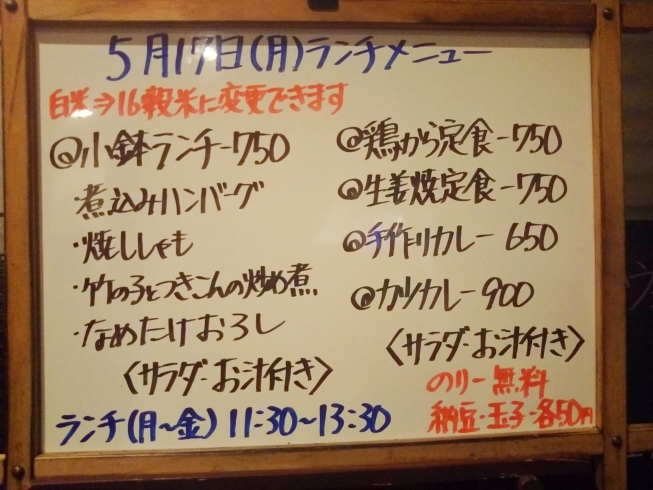 5月17日(月)ランチメニュー
白米⇒16穀米に変更できます
@小鉢ランチ-750
煮込みハンバーグ
・焼ししゃも
・竹の子とつきこんの炒め煮
・なめたけおろし
〈サラダ・お汁付き〉
ランチ(月〜金) 11:30〜13:30
@鶏から定食-750
@生姜焼定食-750
@手作りカレー 650
@カツカレー 900
〈サラダ・お汁付き〉
のりー無料
納豆・玉子・各50円